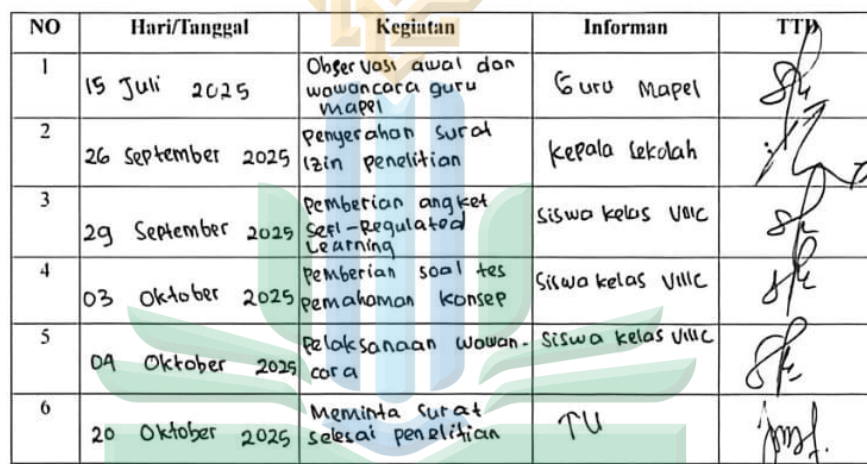 NO Hari/Tanggal Kegiatan Informan TTD
1 15 Juli 2025 Observasi awal dan
wawancara guru
mapel Guru Mapel
2 26 September 2025 Penyerahan Surat
izin penelitian Kepala Sekolah
3 29 September 2025 Pemberian angket
Serl-Regulated
Learning Siswa kelas VIIIC
4 03 Oktober 2025 Pemberian soal tes
pemahaman konsep Siswa kelas VIIIC
5 04 Oktober 2025 Pelaksanaan wawan-
cara Siswa kelas VIIIC
6 20 Oktober 2025 Meminta surat
selesai penelitian TU